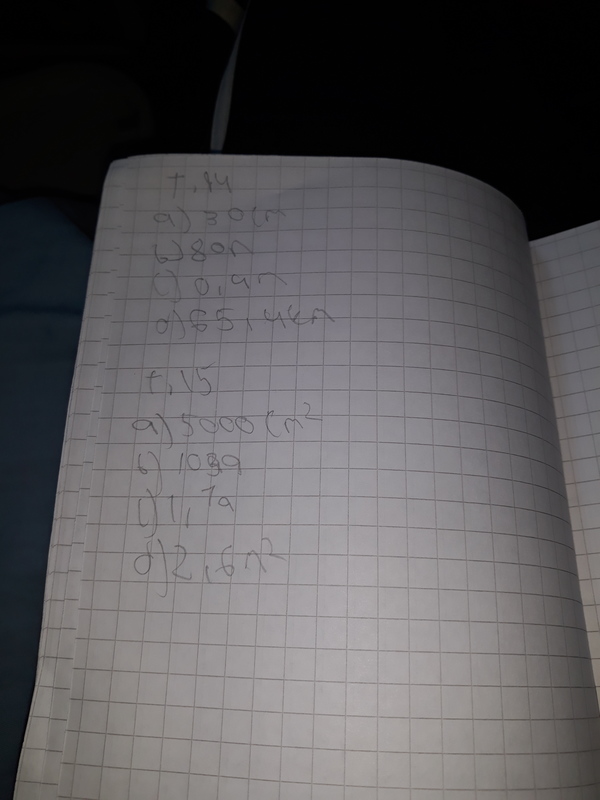 t.14
a) 30cm
b) 80m
c) 0,4m
d) 65,4km
t.15
a) 5000cm²
b)
c) 1,7a
d) 2,6m²